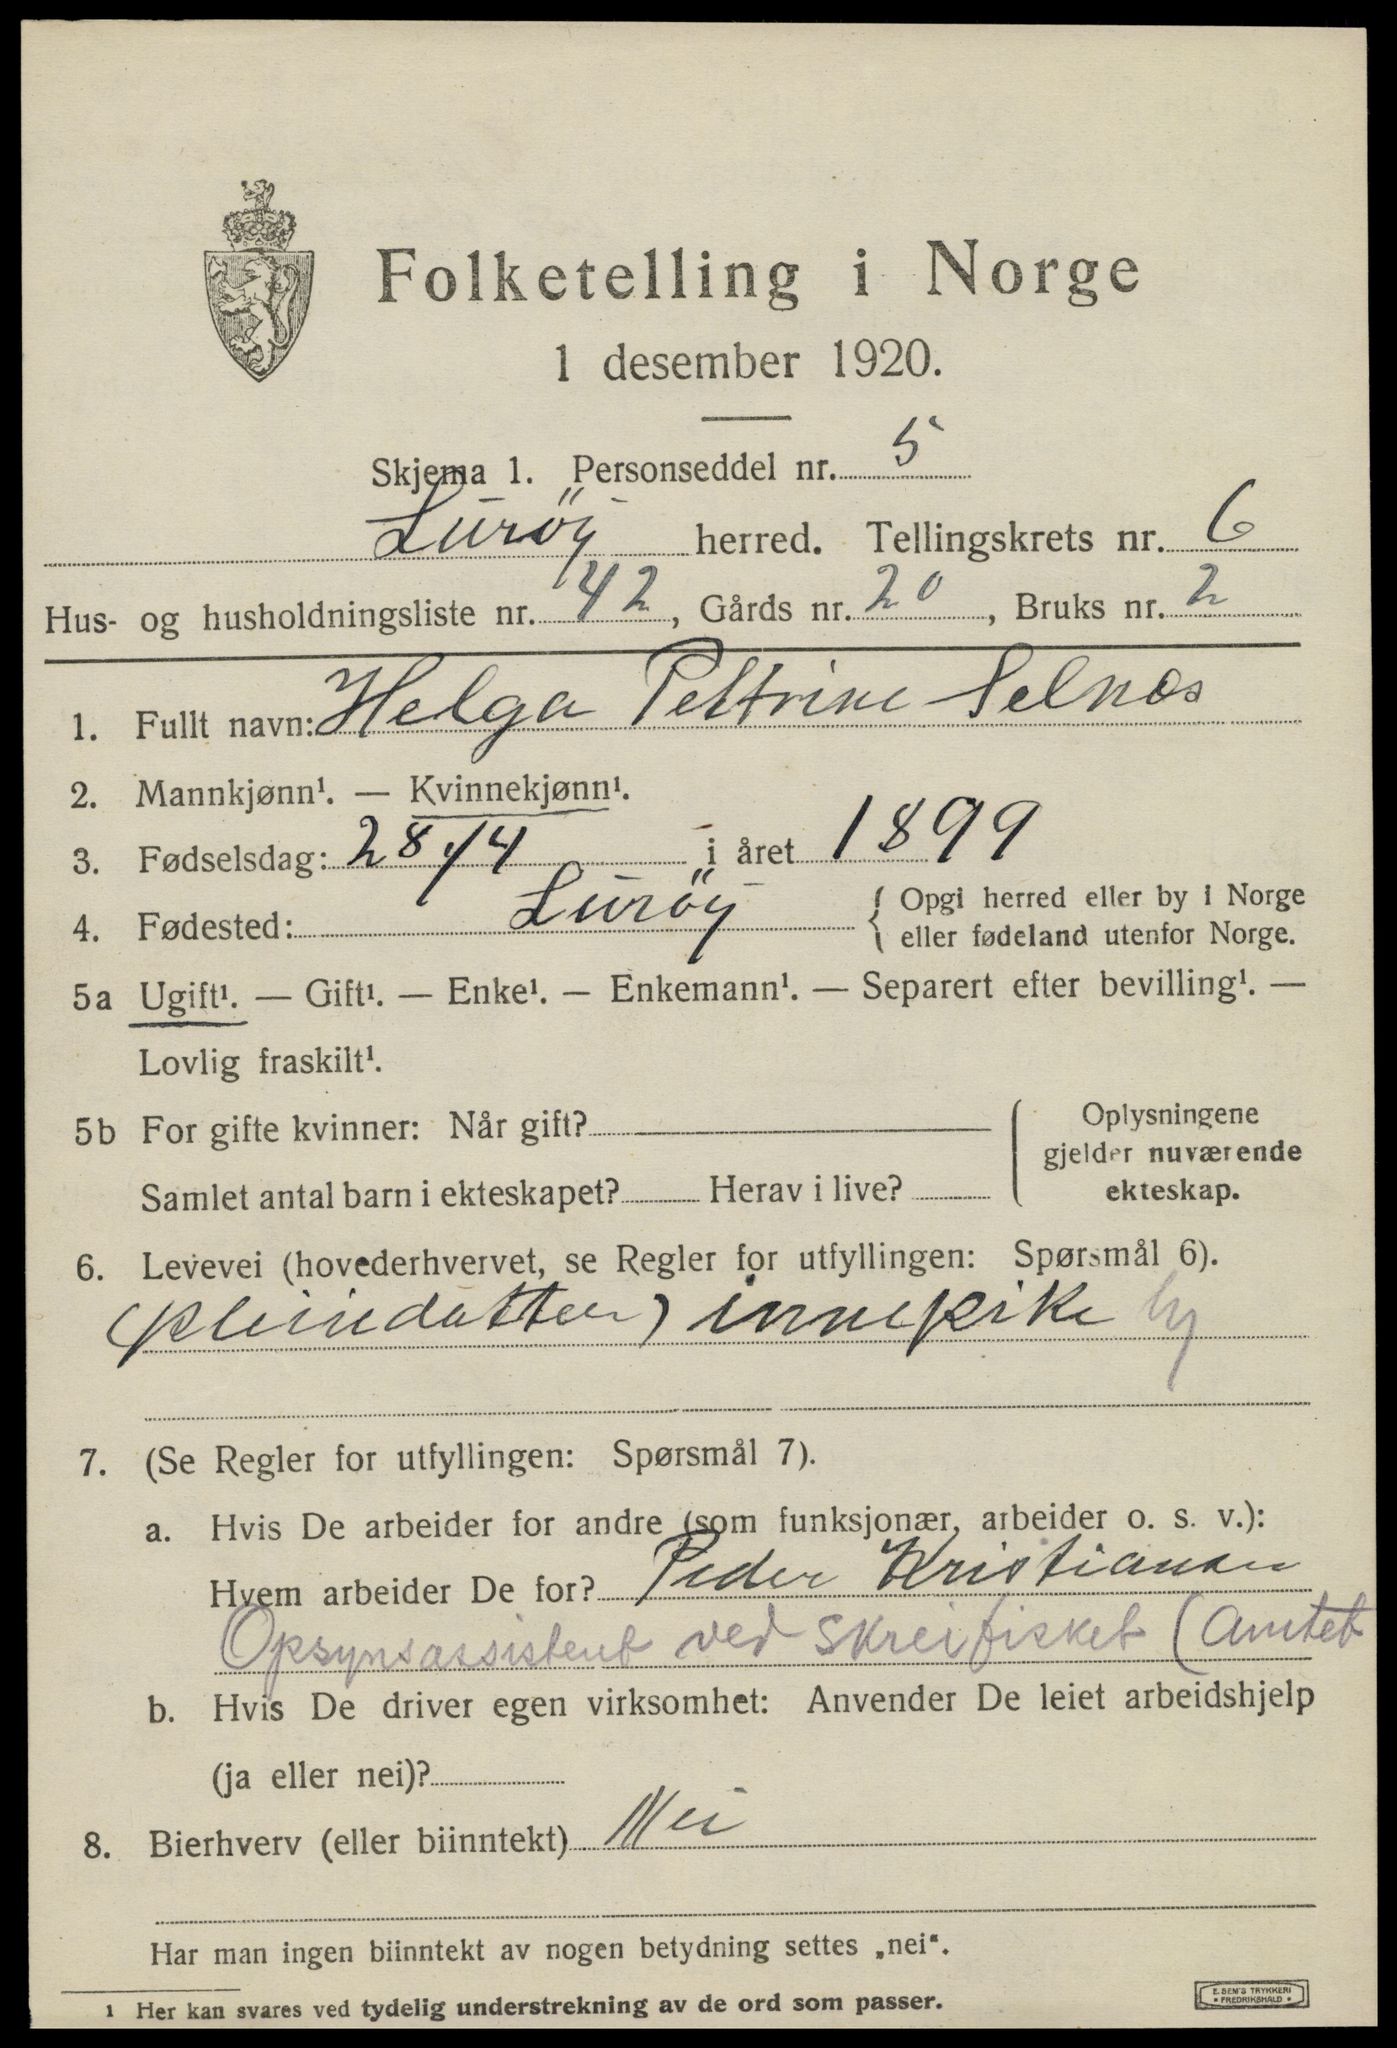 Folketelling i Norge
1 desember 1920.
Skjema 1. Personseddel nr. 5
Luröy herred. Tellingskrets nr. 6
Hus- og husholdningsliste nr. 42, Gårds nr. 20, Bruks nr. 2
1. Fullt navn: Helga Pettrine Selnes
2. Mannkjønn¹. — Kvinnekjønn¹.
3. Fødselsdag: 28/4 i året 1899
4. Fødested: Luröy { Opgi herred eller by i Norge
eller fødeland utenfor Norge.
5a Ugift¹. — Gift¹. — Enke¹. — Enkemann¹. — Separert efter bevilling¹. —
Lovlig fraskilt¹.
5b For gifte kvinner: Når gift?
Samlet antal barn i ekteskapet? Herav i live?
Oplysningene
gjelder nuværende
ekteskap.
6. Levevei (hovederhvervet, se Regler for utfyllingen: Spørsmål 6).
(pleiedatter) innepike hj
7. (Se Regler for utfyllingen: Spørsmål 7).
a. Hvis De arbeider for andre (som funksjonær, arbeider o. s. v.):
Hvem arbeider De for? Peder Kristiansen
Opsynsassistent ved skreifisket (Amtet
b. Hvis De driver egen virksomhet: Anvender De leiet arbeidshjelp
(ja eller nei)?
8. Bierhverv (eller biinntekt) Nei
Har man ingen biinntekt av nogen betydning settes „nei“.
1 Her kan svares ved tydelig understrekning av de ord som passer.
E. SEM'S TRYKKERI
• FREDRIKSHALD •